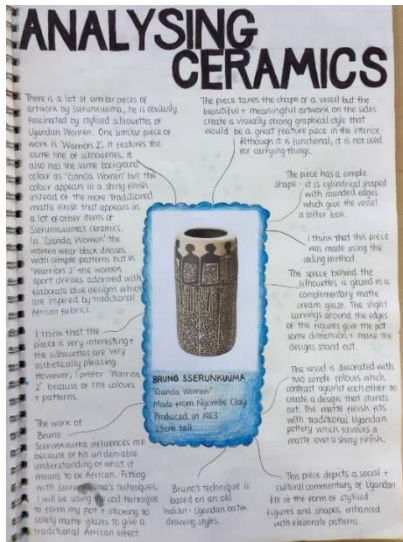 ANALYSING
CERAMICS
There is a lot of similar pieces of
artwork by Sserunkuuma, he is obviously
fascinated by stylised silhouettes of
Ugandan Women. One similar piece of
work is 'Warriors 2'. It features the
same line of silhouettes, it
also has the same background
colour as 'Ganda Women' but the
colour appears in a shiny finish
instead of the more traditional
matte finish that appears in
a lot of other items of
Sserunkuuma's ceramics.
In 'Ganda Women' the
women wear black dresses
with simple patterns but in
'Warriors 2' the women
sport dresses adorned with
elaborate blue designs which
are inspired by traditional
African fabrics.
I think that the
piece is very interesting +
the silhouettes are very
asthetically pleasing.
However, I prefer 'Warriors
2' because of the colours
+ patterns.
The work of
Bruno
Sserunkuuma influences me
because of his undeniable
understanding of what it
means to be African. Fitting
with Sserunkuuma's techniques,
I will be using coil technique
to form my pot + sticking to
solely matte glazes to give a
traditional African effect.
The piece takes the shape of a vessel but the
beautiful + meaningful artwork on the sides
create a visually strong graphical style that
would be a great feature piece in the interior.
Although it is functional, it is not used
for carrying things.
The piece has a simple
shape - it is cylindreal shaped
with rounded edges
which give the vessel
a softer look.
I think that this piece
was made using the
coiling method.
The space behind the
silhouettes is glazed in a
complementary matte
cream glaze. The slight
carvings around the edges
of the figures give the pot
some dimension + make the
designs stand out.
The vessel is decorated with
two simple colours which
contrast against each other to
create a design that stands
out. The matte finish fits
with traditional Ugandan
pottery which favours a
matte over a shiny finish.
This piece depicts a social +
cultural commentary of Ugandan
life in the form of stylised
figures and shapes, enhanced
with elaborate patterns.
BRUNO SSERUNKUUMA
"Ganda Women"
Made from Ntcombe Clay
Produced in 1983
23cm tall
Bruno's technique is
based on an old
Indian-Ugandan batik
drawing styles.